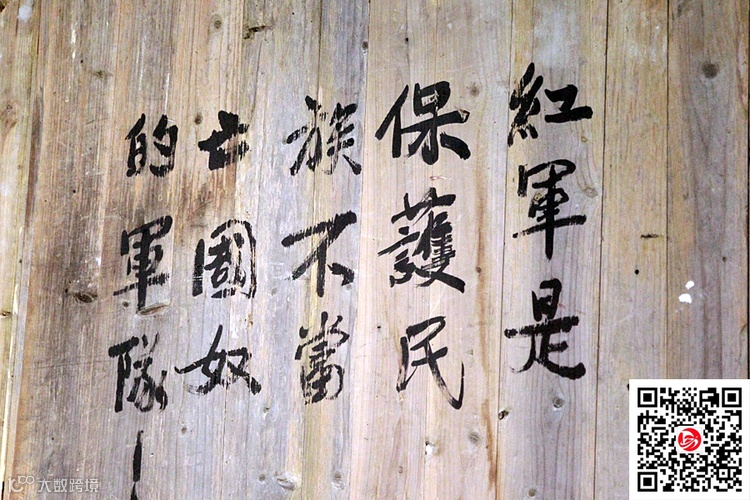 紅軍是
保護民
族不當
亡國奴
的軍隊！
大数跨境